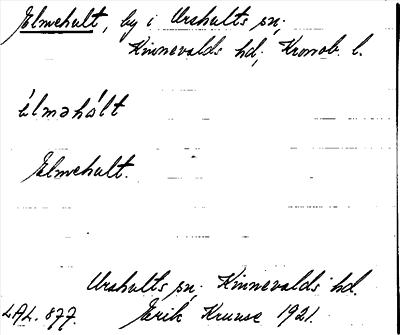 Elmehult, by i Urshults sn;
Kinnevalds hd; Kronob. l.
élməhùlt
Elmehult.
Urshults sn; Kinnevalds hd.
LAL. 877. Erik Kruuse 1921.